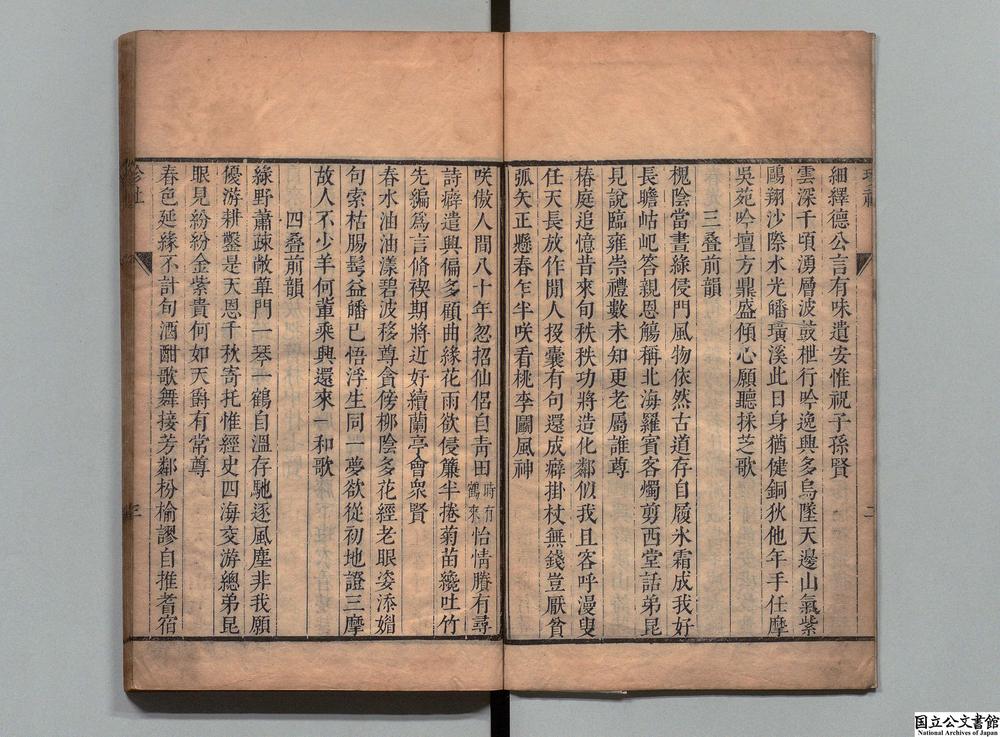 細繹德公言有味遺安惟祝子孫賢
雲深千頃湧層波鼓枻行吟逸興多烏墜天邊山氣紫
鷗翔沙際水光皤璜溪此日身猶健銅狄他年手任摩
吳苑吟壇方鼎盛傾心願聽採芝歌
三叠前韻
槐陰當晝綠侵門風物依然古道存自履氷霜成我好
長瞻岵屺答親恩觴稱北海羅賓客燭剪西堂話弟昆
見說臨雍崇禮數未知更老屬誰尊
椿庭追憶昔來旬秩秩功將造化鄰似我且容呼漫叟
任天長放作閒人投囊有句還成癖掛杖無錢豈厭貧
弧矢正懸春乍半咲看桃李鬭風神
咲傲人間八十年忽招仙侶自靑田時有鶴來怡情賸有尋
詩癖遣興偏多顧曲緣花雨欲侵簾半捲菊苗纔吐竹
先編爲言脩禊期將近好續蘭亭會衆賢
春水油油漾碧波移尊貪傍柳陰多花經老眼姿添媚
句索枯腸髩益皤已悟浮生同一夢欲從初地證三摩
故人不少羊何輩乘興還來一和歌
四叠前韻
綠野蕭疎敞蓽門一琴一鶴自溫存馳逐風塵非我願
優游耕鑿是天恩千秋寄托惟經史四海交游總弟昆
眼見紛紛金紫貴何如天爵有常尊
春邑延緣不計旬酒酣歌舞接芳鄰枌榆謬自推耆宿
三
国立公文書館
National Archives of Japan